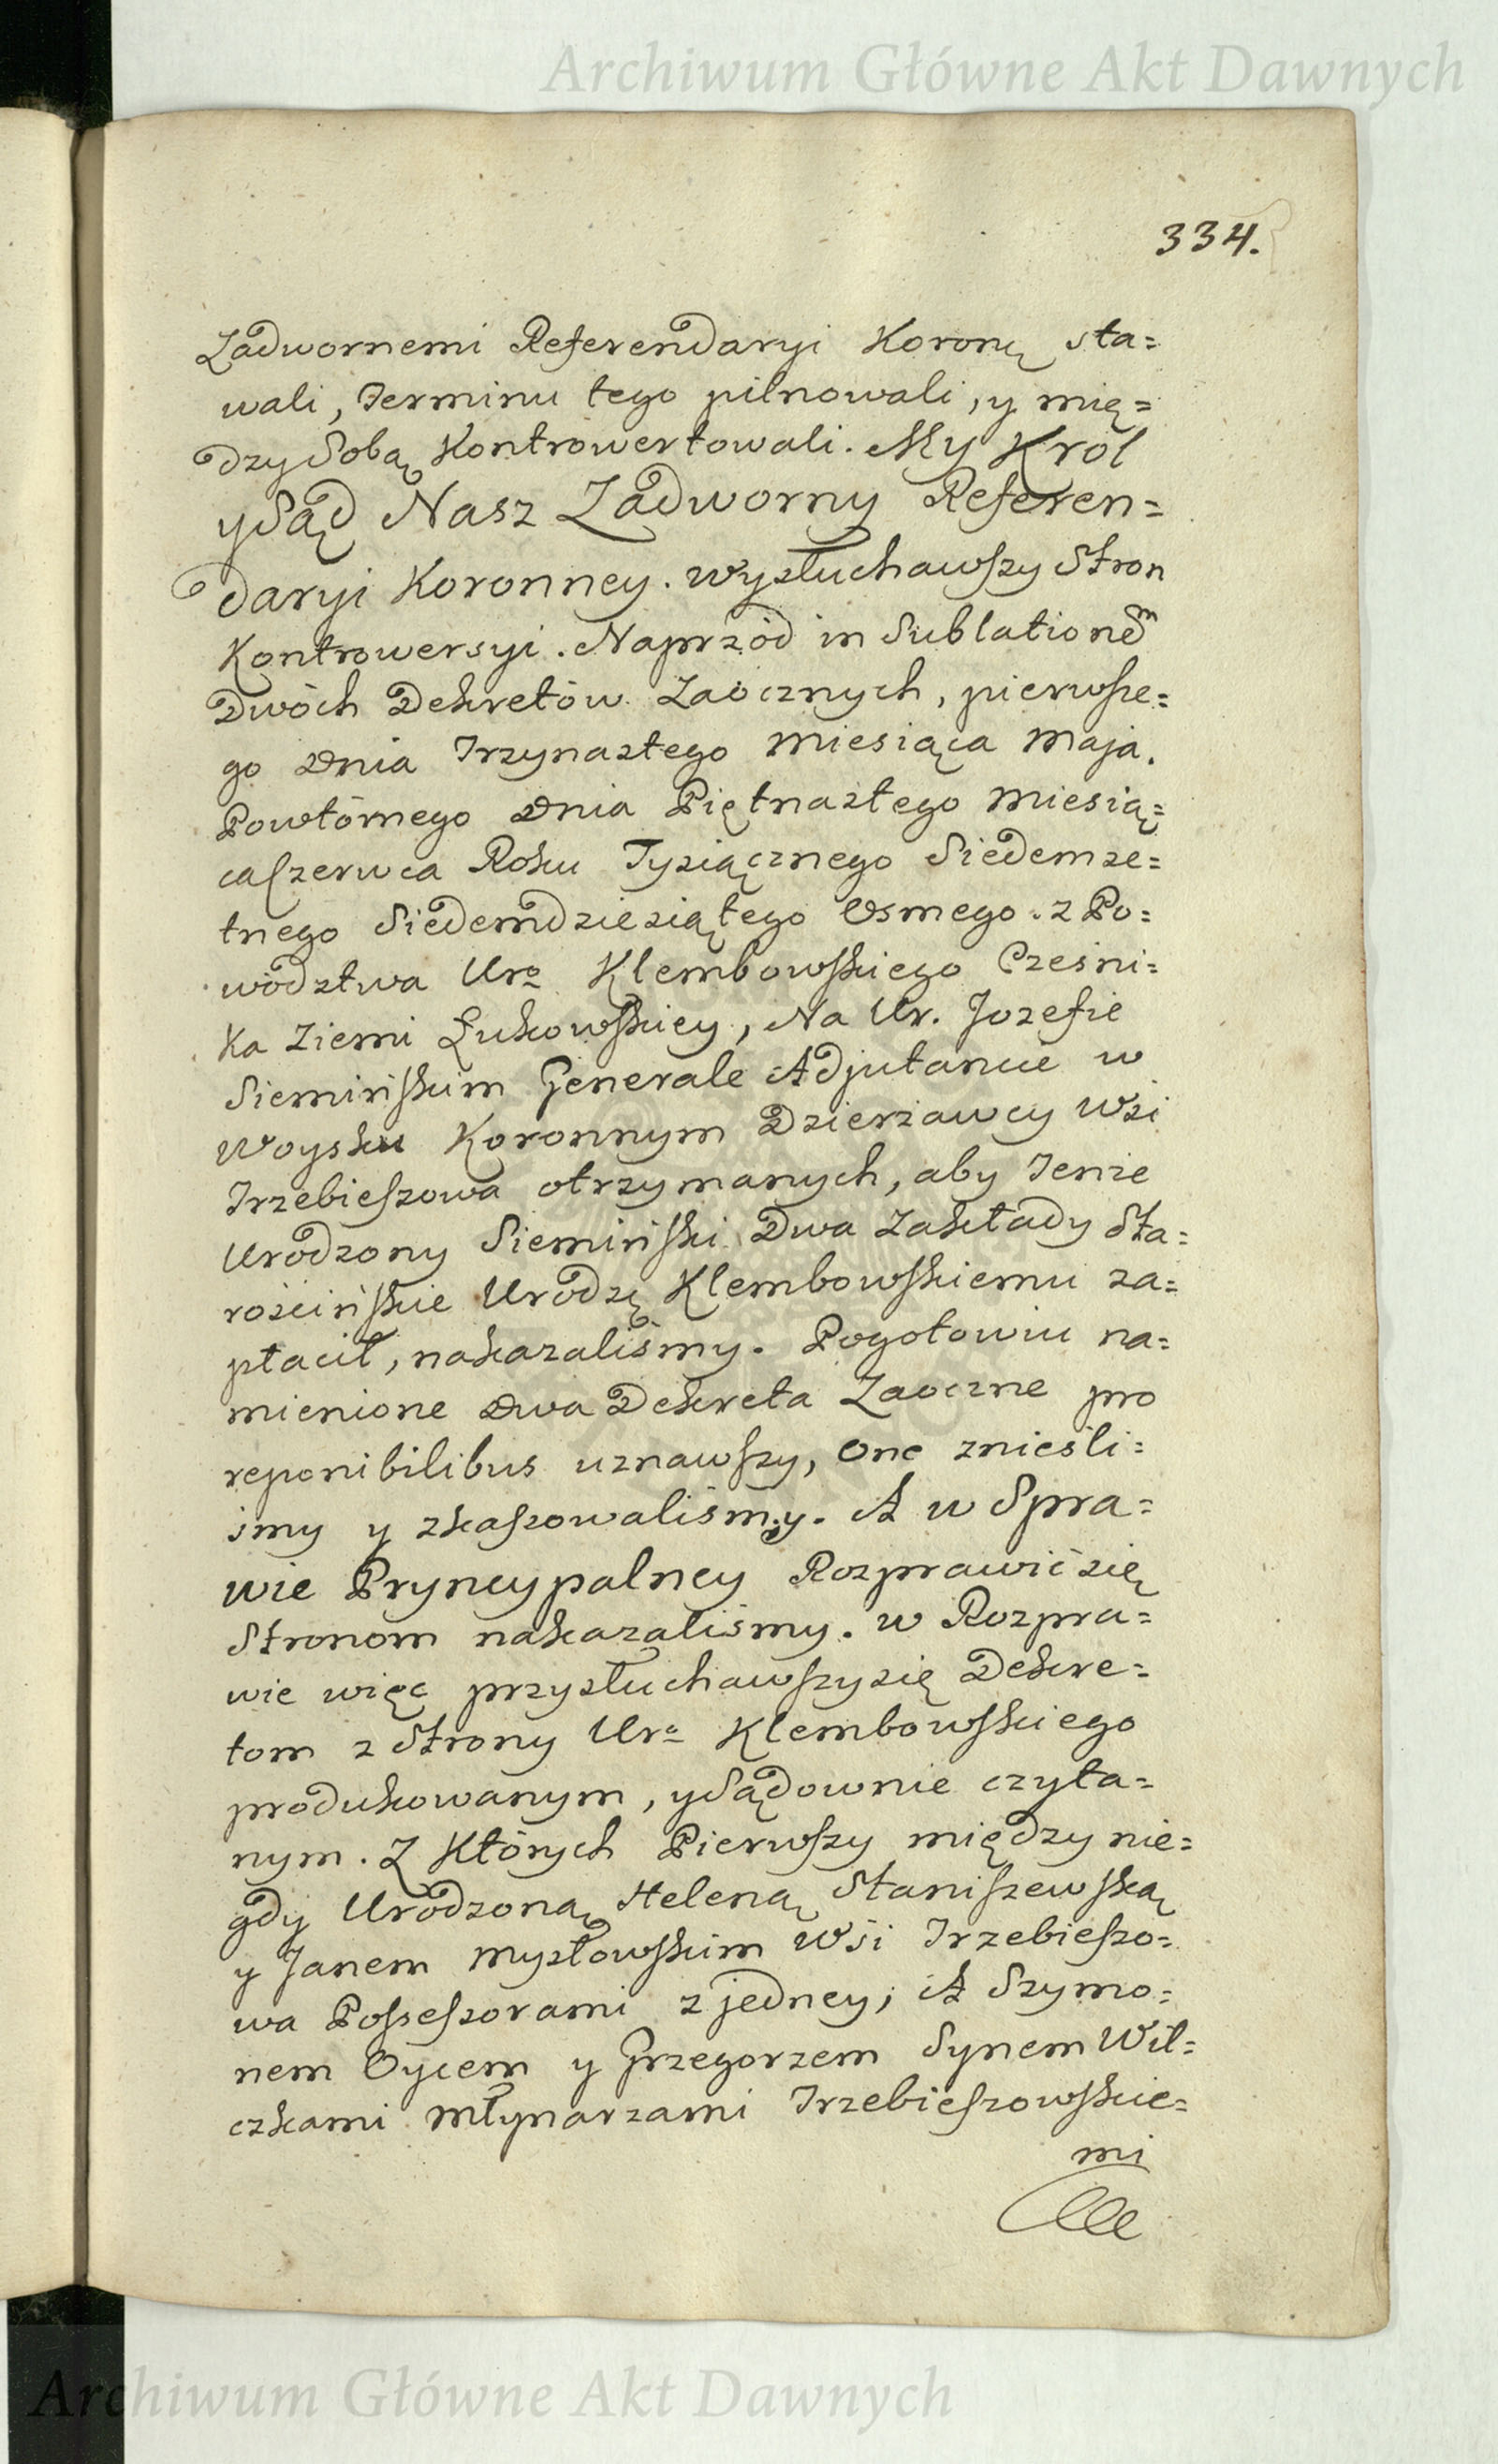 Archiwum Główne Akt Dawnych
334.
Zadwornemi Referendaryi Koronę sta=
wali, Terminu tego pilnowali, y mię=
dzy Sobą Kontrowertowali. My Krol
y Sąd Nasz Zadworny Referen=
daryi Koronney. Wysłuchawszy Stron
Kontrowersyi. Naprzód in Sublationem
Dwóch Dekretów Zaocznych, pierwsze=
go Dnia Trzynastego Miesiąca Maja.
Powtórnego Dnia Piętnastego Miesią=
ca Czerwca Roku Tysiącznego Siedemse=
tnego Siedemdziesiątego Osmego. z Po=
wództwa Uro Klembowskiego Cześni=
ka Ziemi Łukowskiey, Na Ur. Jozefie
Siemińskim Generale Adjutancie w
Woysku Koronnym Dzierżawcy Wsi
Trzebieszowa otrzymanych, aby Tenże
Urodzony Siemiński Dwa Zakłady Sta=
rościńskie Urodzę Klembowskiemu za=
płacił, nakazaliśmy. Pogotowiu na=
mienione Dwa Dekreta Zaoczne pro
reponibilibus uznawszy, One znieśli=
śmy y skassowaliśmy. A w Spra=
wie Pryncypalney Rozprawić się
Stronom nakazaliśmy. w Rozpra=
wie więc przysłuchawszy się Dekre=
tom z Strony Uro Klembowskiego
produkowanym, y Sądownie czyta=
nym. Z Których Pierwszy między nie=
gdy Urodzoną Heleną Staniszewską
y Janem Mysłowskim Wsi Trzebieszo=
wa Possessorami z jedney; A Szymo=
nem Oycem y Grzegorzem Synem Wil=
czkami Młynarzami Trzebieszowskie=
mi
Archiwum Główne Akt Dawnych